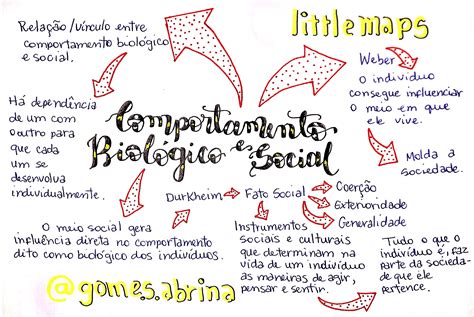 littlemaps
Relação/vínculo entre
comportamento biológico
e social.
Weber
O indivíduo
consegue influenciar
o meio em que
ele vive.
Molda a
sociedade.
Comportamento
Biológico e Social
Há dependência
de um com
outro para
que cada
um se
desenvolva
individualmente.
O meio social gera
influência direta no comportamento
dito como biológico dos indivíduos.
Durkheim
Fato Social
Coerção
Exterioridade
Generalidade
Instrumentos
sociais e culturais
que determinam na
vida de um indivíduo
as maneiras de agir,
pensar e sentir.
Tudo o que o
indivíduo é, faz
parte da socieda-
de que ele
pertence.
@gomes.abrina